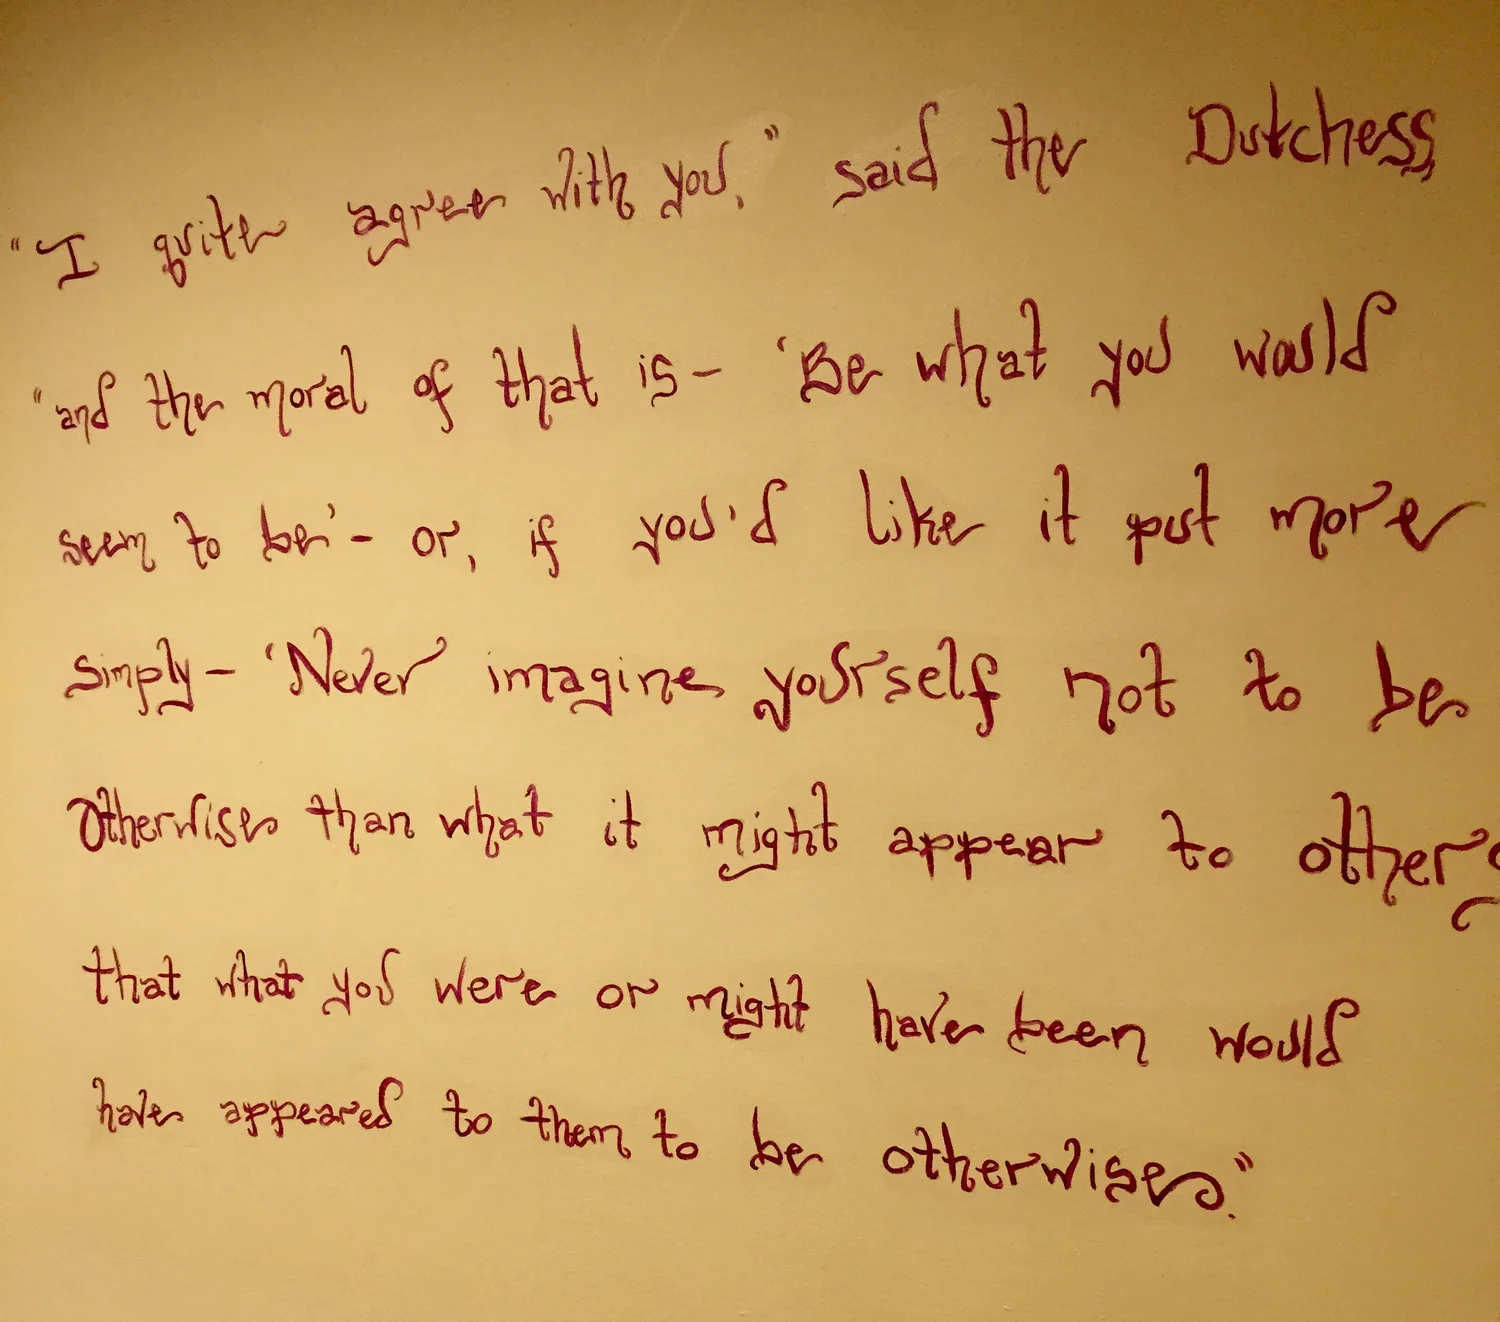 "I quite agree with you," said the Dutchess,
"and the moral of that is- 'Be what you would
seem to be'- or, if you'd like it put more
simply- 'Never imagine yourself not to be
otherwise than what it might appear to others
that what you were or might have been would
have appeared to them to be otherwise."